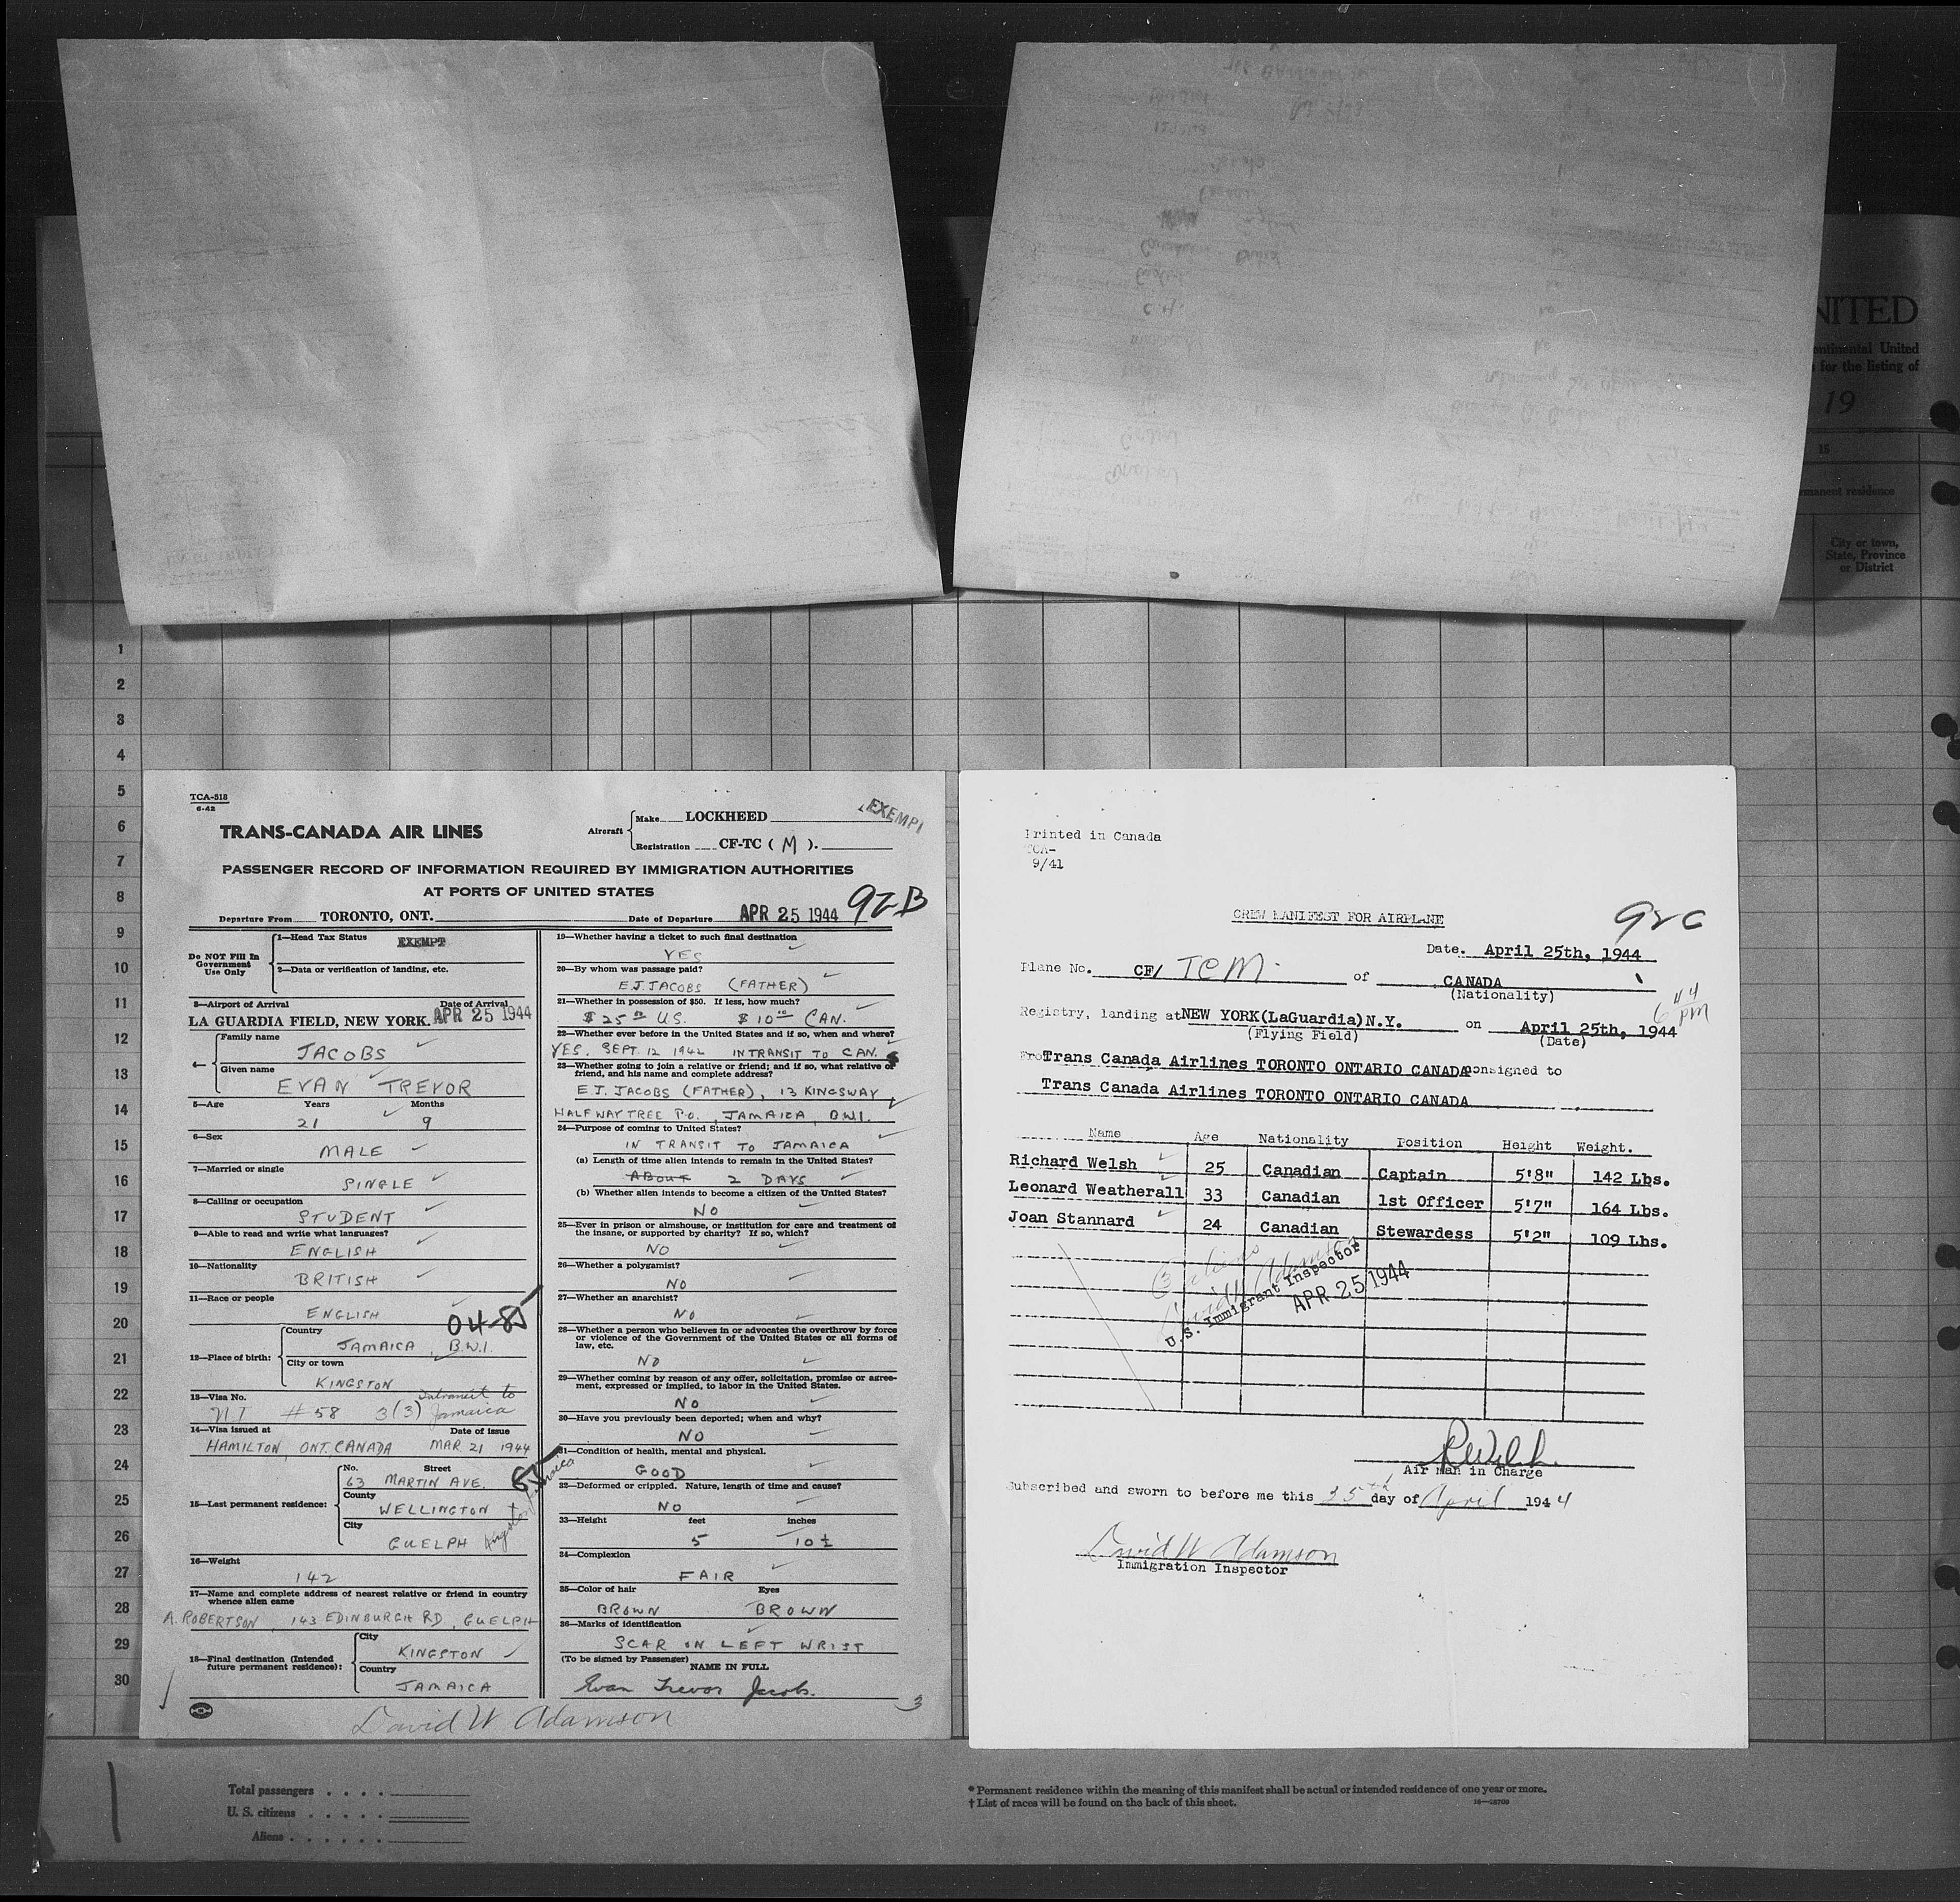 NITED
ontinental United
for the listing of
19
15
manent residence
City or town,
State, Province
or District
1
2
3
4
5
6
7
8
9
10
11
12
13
14
15
16
17
18
19
20
21
22
23
24
25
26
27
28
29
30
TCA-518
6-42
TRANS-CANADA AIR LINES
Aircraft
Make LOCKHEED
Registration CF-TC ( M ).
EXEMPT
PASSENGER RECORD OF INFORMATION REQUIRED BY IMMIGRATION AUTHORITIES
AT PORTS OF UNITED STATES
92B
Departure From TORONTO, ONT. Date of Departure APR 25 1944
Do NOT Fill In Government Use Only
1—Head Tax Status EXEMPT
2—Data or verification of landing, etc.
3—Airport of Arrival Date of Arrival
LA GUARDIA FIELD, NEW YORK. APR 25 1944
Family name
JACOBS
Given name
EVAN TREVOR
5—Age Years Months
21 9
6—Sex
MALE
7—Married or single
SINGLE
8—Calling or occupation
STUDENT
9—Able to read and write what languages?
ENGLISH
10—Nationality
BRITISH
11—Race or people
ENGLISH
04-85
12—Place of birth:
Country
JAMAICA, B.W.I.
City or town
KINGSTON
13—Visa No. Intransit to
NI #58 3(3) Jamaica
14—Visa issued at Date of issue
HAMILTON, ONT. CANADA MAR 21 1944
15—Last permanent residence:
No. Street
63 MARTIN AVE.
85
County
WELLINGTON
City
GUELPH
Kingston Jamaica
16—Weight
142
17—Name and complete address of nearest relative or friend in country
whence alien came
A. ROBERTSON, 143 EDINBURGH RD, GUELPH
18—Final destination (Intended
future permanent residence):
City
KINGSTON
Country
JAMAICA
19—Whether having a ticket to such final destination
YES
20—By whom was passage paid?
E.J. JACOBS (FATHER)
21—Whether in possession of $50. If less, how much?
$25 U.S. $10 CAN.
22—Whether ever before in the United States and if so, when and where?
YES. SEPT. 12 1942 IN TRANSIT TO CAN.
23—Whether going to join a relative or friend; and if so, what relative or
friend, and his name and complete address?
E.J. JACOBS (FATHER), 13 KINGSWAY
HALF WAY TREE P.O., JAMAICA, B.W.I.
24—Purpose of coming to United States?
IN TRANSIT TO JAMAICA
(a) Length of time alien intends to remain in the United States?
ABOUT 2 DAYS
(b) Whether alien intends to become a citizen of the United States?
NO
25—Ever in prison or almshouse, or institution for care and treatment of
the insane, or supported by charity? If so, which?
NO
26—Whether a polygamist?
NO
27—Whether an anarchist?
NO
28—Whether a person who believes in or advocates the overthrow by force
or violence of the Government of the United States or all forms of
law, etc.
NO
29—Whether coming by reason of any offer, solicitation, promise or agree-
ment, expressed or implied, to labor in the United States.
NO
30—Have you previously been deported; when and why?
NO
31—Condition of health, mental and physical.
GOOD
32—Deformed or crippled. Nature, length of time and cause?
NO
33—Height feet inches
5 10½
34—Complexion
FAIR
35—Color of hair Eyes
BROWN BROWN
36—Marks of identification
SCAR ON LEFT WRIST
(To be signed by Passenger)
NAME IN FULL
Evan Trevor Jacobs.
David W Adamson
3
Printed in Canada
TCA-
9/41
CREW MANIFEST FOR AIRPLANE
92C
Date. April 25th, 1944
Plane No. CF/ TCM of CANADA
(Nationality)
6 44 pm
Registry, landing at NEW YORK(LaGuardia)N.Y. on April 25th, 1944
(Flying Field) (Date)
From Trans Canada Airlines TORONTO ONTARIO CANADA consigned to
Trans Canada Airlines TORONTO ONTARIO CANADA
Name Age Nationality Position Height Weight.
Richard Welsh 25 Canadian Captain 5'8" 142 Lbs.
Leonard Weatherall 33 Canadian 1st Officer 5'7" 164 Lbs.
Joan Stannard 24 Canadian Stewardess 5'2" 109 Lbs.
David W Adamson
U.S. Immigrant Inspector
APR 25 1944
R Welsh
Air Man in Charge
Subscribed and sworn to before me this 25th day of April 1944
David W Adamson
Immigration Inspector
Total passengers
U. S. citizens
Aliens
* Permanent residence within the meaning of this manifest shall be actual or intended residence of one year or more.
† List of races will be found on the back of this sheet.
16—18709